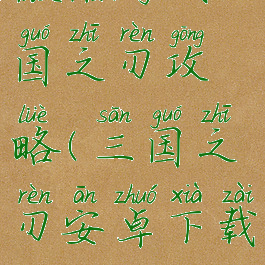 guó zhī rèn gōng
国之刃攻
lüè sān guó zhī
略(三国之
rèn ān zhuó xià zài
刃安卓下载